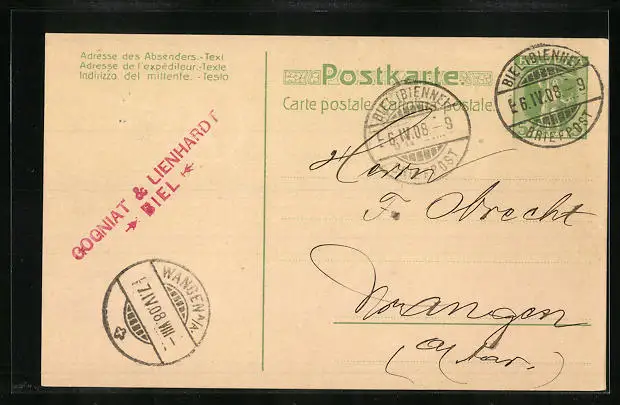 Adresse des Absenders.-Text
Adresse de l'expéditeur.-Texte
Indirizzo del mittente.-Testo
Postkarte
Carte postale. Cartolina postale.
BIEL (BIENNE)
6.IV.08.-9
BRIEFPOST
BIEL (BIENNE)
6.IV.08.-9
BRIEFPOST
GOGNIAT & LIENHARDT
BIEL
Herrn
F. Obrecht
Wangen
(a/Aar.)
WANGEN A/A.
7.IV.08.VIII-